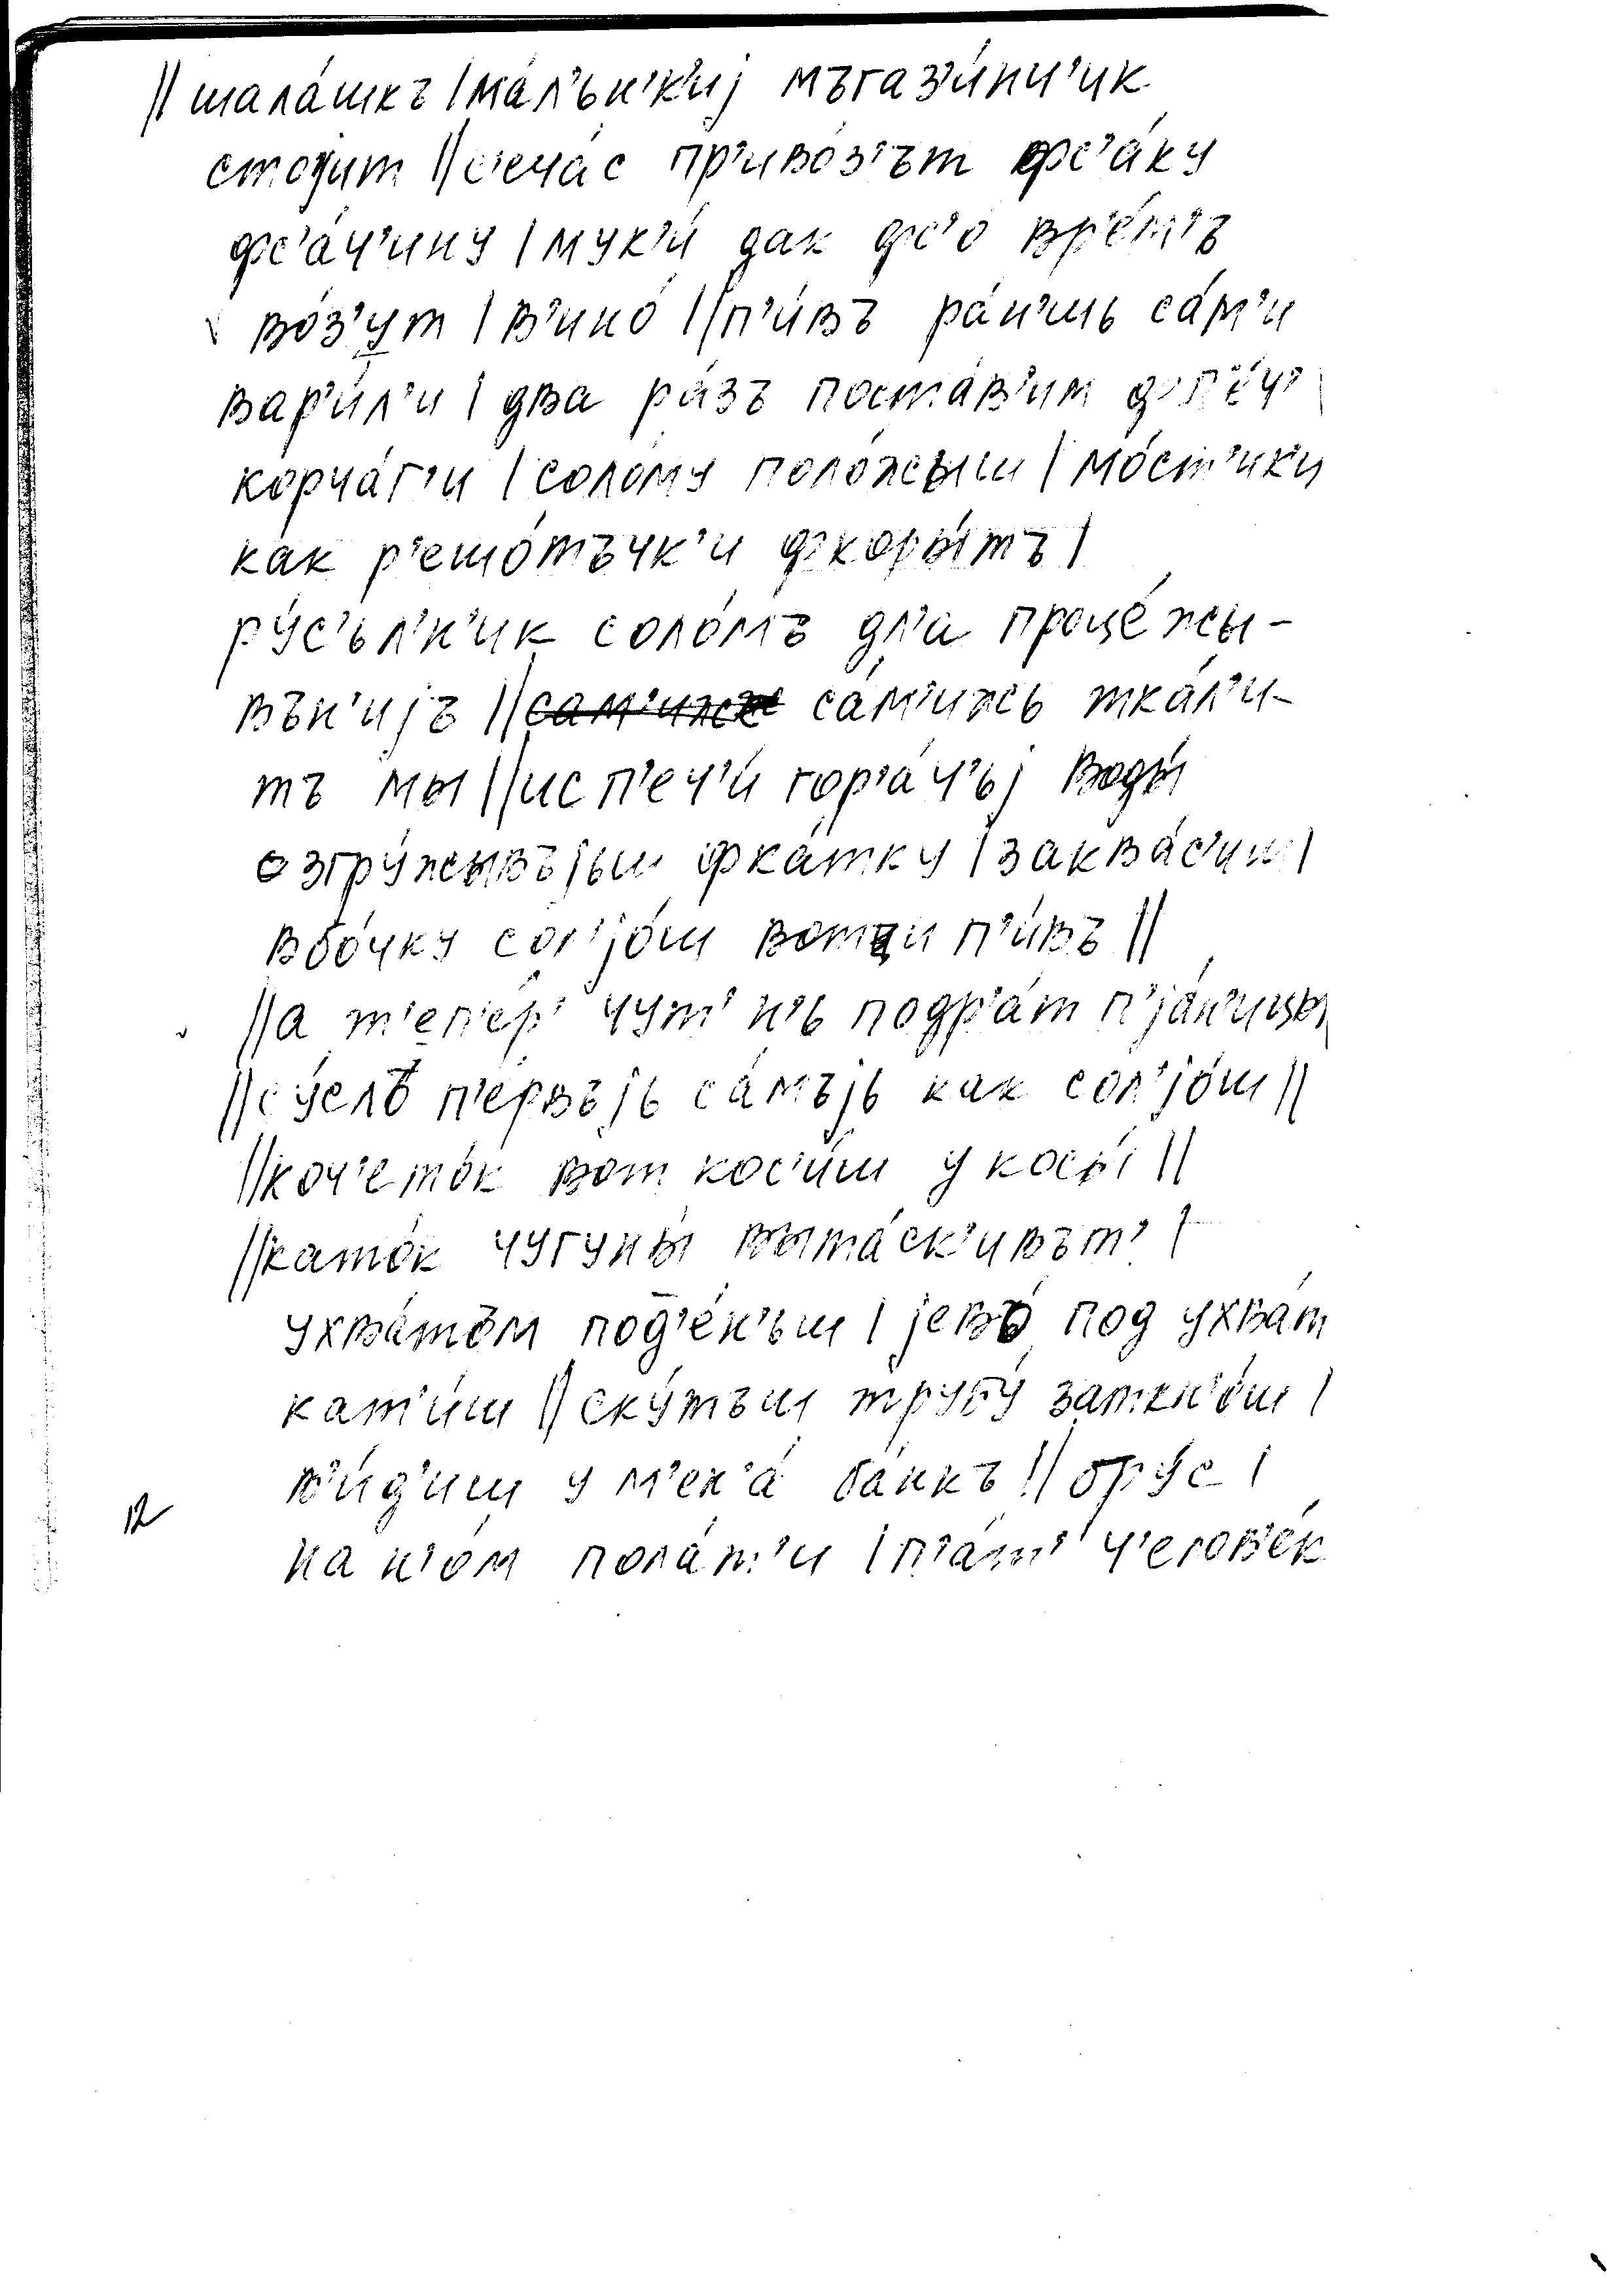 ||шала́шкъ |ма́л'ьн'к'иj мъгаз'и́нч'ик
стоjит ||с'еча́с пр'иво́з'ът фс'а́ку
фс'а́ч'ину |мук'и́ дак фс'о вр'е́м'ъ
во́з'ут |в'ино́ ||п'и́въ ра́н'шь са́м'и
вар'и́л'и |два ра́зъ поста́в'им ф п'е́ч'
корча́г'и |соло́му поло́жыш |мо́ст'ик'и
как р'ешо́тъчк'и фкоры́тъ|
ру́с'ьл'н'ик соло́мъ дл'а проце́жы-
вън'иjъ || са́м'ижь тка́л'и-
тъ мы ||ис п'еч'и́ гор'а́ч'ьj воды́
озгру́жывъjьш фка́тку |заква́с'иш|
вбо́чку сол'jо́ш вотци п'и́въ ||
||а т'еп'е́р' чут' н'ь подр'а́т п'jа́н'ицы
||су́слъ п'е́рвъjь са́мъjь как сол'jо́ш||
||коч'ето́к вот кос'и́ш у косы́ ||
||като́к чугуны́ выта́ск'ивът' |
ухва́тъм под'е́н'ьш |jево́ под ухва́т
кат'и́ш ||ску́тъш трубу́ заткн'о́ш |
в'и́д'иш у м'ен'а́ ба́нкъ || ору́с |
на н'о́м пола́т'и |п'а́т' ч'елов'е́к
12